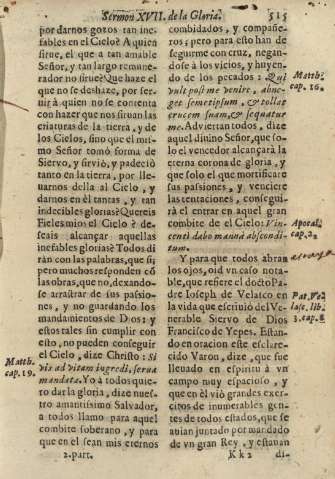 Sermon XVII. de la Gloria. 515
por darnos gozos tan ine-
fables en el Cielo? A quien
sirue, el que a tan amable
Señor, y tan largo remune-
rador no sirue? Que haze el
que no se deshaze, por ser-
uir à quien no se contenta
con hazer que nos siruan las
criaturas de la tierra, y de
los Cielos, sino que el mis-
mo Señor tomò forma de
Siervo, y sirviò, y padeciò
tanto en la tierra, por lle-
uarnos della al Cielo, y
darnos en èl tantas, y tan
indecibles glorias? Quereis
Fieles mios el Cielo? de-
seais alcançar aquellas
inefables glorias? Todos di-
ràn con las palabras, que si;
pero muchos responden cõ
las obras, que no, dexando-
se arrastrar de sus passio-
nes, y no guardando los
mandamientos de Dios: y
estos tales sin cumplir con
esto, no pueden conseguir
el Cielo, dize Christo: Si
vis ad vitam ingredi, serua
mandata. Yo à todos quie-
ro dar la gloria, dize nues-
tro amantissimo Salvador,
a todos llamo para aquel
combite soberano, y para
que en el sean mis eternos
2. part.
Matth.
cap. 19.
combidados, y compañe-
ros; pero para esto han de
seguirme con cruz, negan-
dose à los vicios, y huyen-
do de los pecados: Qui
vult post me venire, abne-
get semetipsum, & tollat
crucem suam, & sequatur
me. Adviertan todos, dize
aquel divino Señor, que so-
lo el vencedor alcançarà la
eterna corona de gloria, y
que solo el que mortificare
sus passiones, y venciere
las tentaciones, consegui-
rà el entrar en aquel gran
combite de el Cielo: Vin-
centi dabo manna abscondi-
tum.
Y para que todos abran
los ojos, oid vn caso nota-
ble, que refiere el docto Pa-
dre Ioseph de Velasco en
la vida que escriuiò del Ve-
nerable Siervo de Dios
Francisco de Yepes. Estan-
do en oracion este esclare-
cido Varon, dize, que fue
lleuado en espiritu à vn
campo muy espacioso, y
que en èl viò grandes exer-
citos de inumerables gen-
tes de todos estados, que se
auian juntado por manda-
do de vn gran Rey, y estavan
Kk 2 di-
Matth.
cap. 16.
Apocal.
cap. 2.
Pat. Ve-
lasc. lib.
3. cap. 8